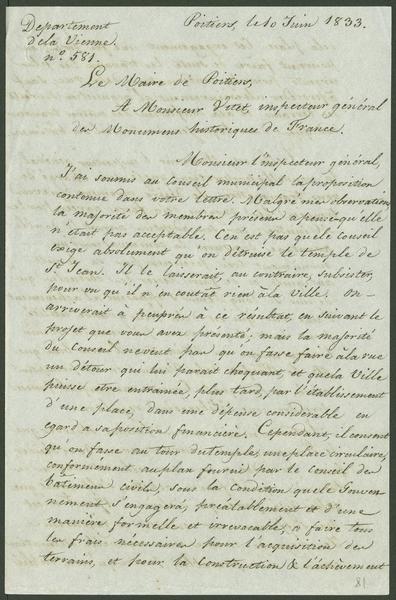 Departement
de la Vienne.
n.º 581.
Poitiers, le 10 Juin 1833.
Le Maire de Poitiers,
A Monsieur Vitet, inspecteur général
des Monumens historiques de France.
Monsieur l'inspecteur général,
J'ai soumis au Conseil municipal la proposition
contenue dans votre lettre. Malgré mes observations,
la majorité des membres présens a pensé qu'elle
n'était pas acceptable. Ce n'est pas que le Conseil
exige absolument qu'on détruise le temple de
St. Jean. Il le laisserait, au contraire, subsister,
pourvu qu'il n'en coutât rien à la Ville. On
arriverait à peuprès à ce résultat, en suivant le
projet que vous avez présenté; mais la majorité
du Conseil ne veut pas qu'on fasse faire à la rue
un détour qui lui parait choquant, et que la Ville
puisse etre entrainée, plus tard, par l'établissement
d'une place, dans une dépense considérable en
egard a sa position financière. Cependant, il consent
qu'on fasse au tour du temple, une place circulaire,
conformement au plan fourni par le Conseil des
bâtimens civils, sous la condition que le Gouver-
nement s'engagera, préalablement et d'une
manière formelle et irrévocable, a faire tous
les frais nécessaires pour l'acquisition des
terrains, et pour la construction & l'achèvement
81